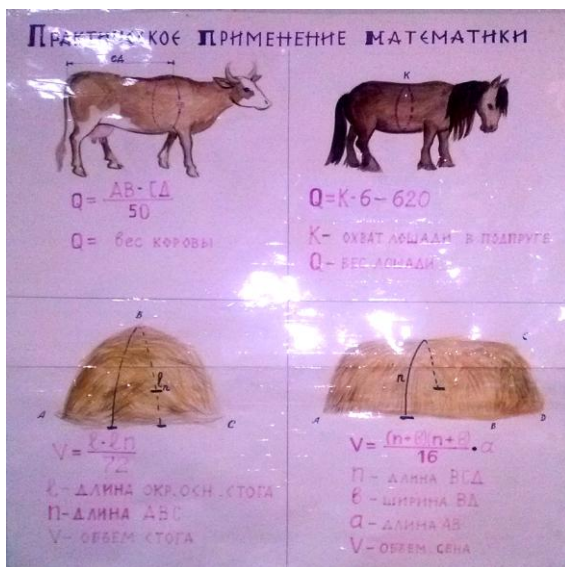 ПРАКТИЧЕСКОЕ ПРИМЕНЕНИЕ МАТЕМАТИКИ
СД
Q = АВ·СД / 50
Q = вес коровы
К
Q = К·6 – 620
К – ОХВАТ ЛОШАДИ В ПОДПРУГЕ
Q – ВЕС ЛОШАДИ
В
ℓn
А
С
V = / 72
ℓ – ДЛИНА ОКР. ОСН. СТОГА
n – ДЛИНА АВС
V – ОБЪЕМ СТОГА
С
n
А
В
D
V = / 16 · а
П – ДЛИНА ВСД
в – ШИРИНА ВД
а – ДЛИНА АВ
V – ОБЪЕМ СЕНА